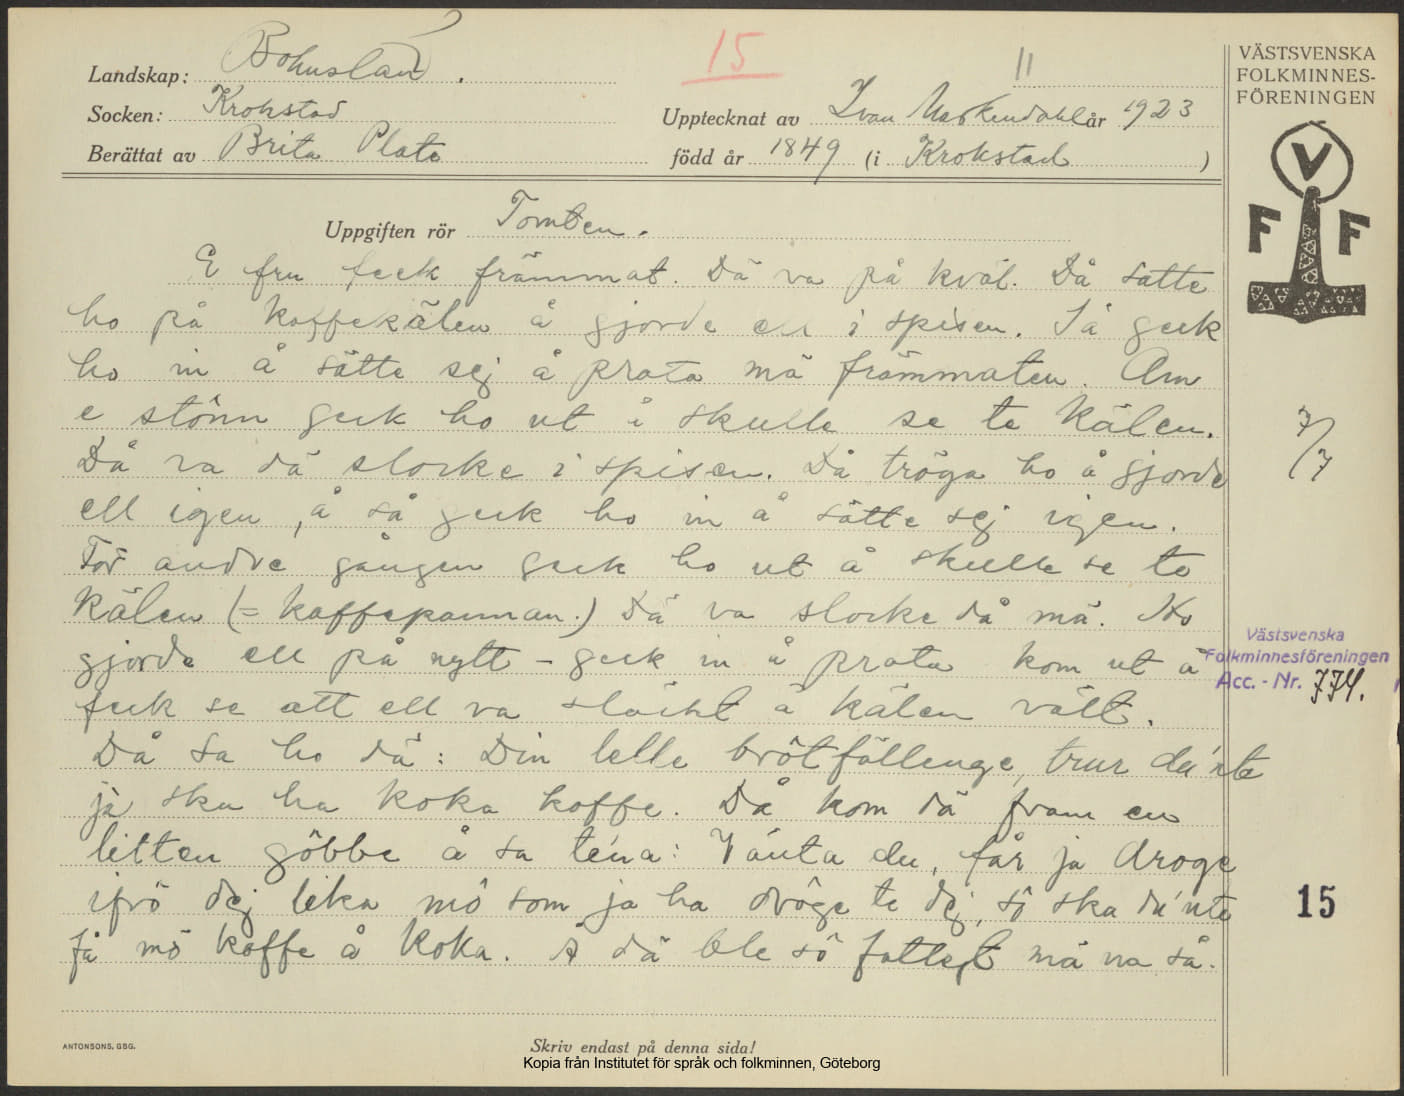 Landskap: Bohuslän.
15
11
VÄSTSVENSKA
FOLKMINNES-
FÖRENINGEN
Socken: Krokstad
Upptecknat av Ivan Markendahl år 1923
Berättat av Brita Plate
född år 1849 (i Krokstad )
V
F F
Uppgiften rör Tomten.
E fru feck främmat. Dä va på kväl. Då satte
ho på kaffekälen å gjorde ell i spisen. Så geck
ho in å sätte sej å prata mä främmaten. Am
e stönn geck ho ut å skulle se te kälen.
Då va dä slocke i spisen. Då tröga ho å gjorde
ell igen, å så geck ho in å sätte sej igen.
För andre gången geck ho ut å skulle se te
kälen (= kaffepannan.) Dä va slocke då mä. Ho
gjorde ell på nytt - geck in å prata kom ut å
feck se att ell va släckt å kälen vält.
Då sa ho dä: Din lelle brötfällenge, trur du'nte
jä ska ha koka kaffe. Då kom dä fram en
litten göbbe å sa te'na: Vänta du, får ja droge
ifrö dej lika mö som ja ha dröge te dej, sö ska du'nte
få mö kaffe å koka. Å dä ble sö fattegt mä na så.
7/7
Västsvenska
Folkminnesföreningen
Acc. - Nr. 774.
15
ANTONSONS, GBG.
Skriv endast på denna sida!
Kopia från Institutet för språk och folkminnen, Göteborg